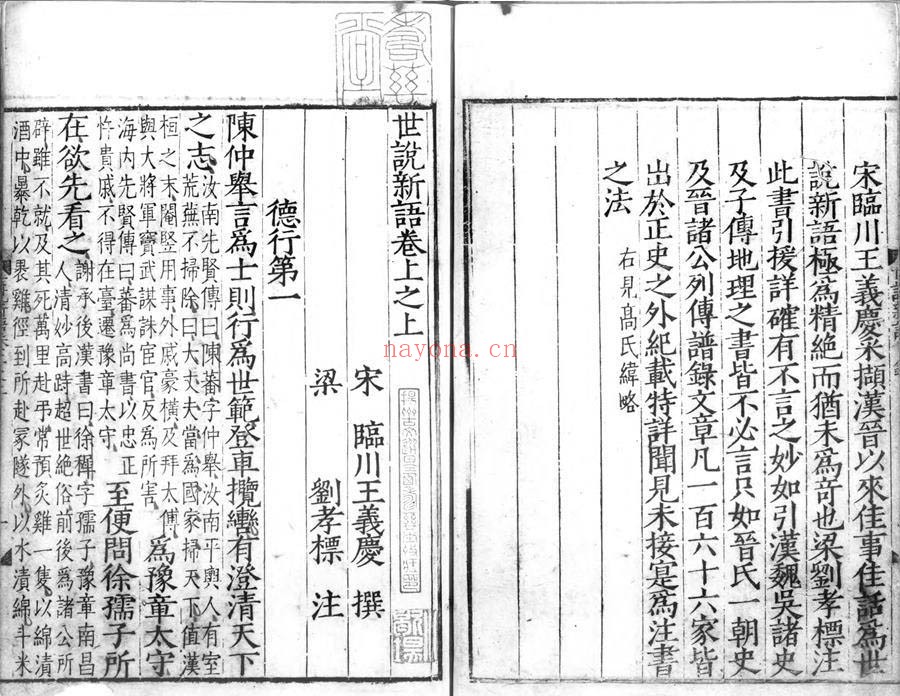 宋臨川王義慶采擷漢晉以來佳事佳話爲世
說新語極爲精絶而猶未爲奇也梁劉孝標注
此書引援詳確有不言之妙如引漢魏吳諸史
及子傳地理之書皆不必言只如晉氏一朝史
及晉諸公列傳譜錄文章凡一百六十六家皆
出於正史之外紀載特詳聞見未接寔爲注書
之法
右見高氏緯略
世說新語卷上之上
宋 臨川王義慶 撰
梁 劉孝標 注
德行第一
陳仲舉言爲士則行爲世範登車攬轡有澄清天下
之志
汝南先賢傳曰陳蕃字仲舉汝南平輿人有室
荒蕪不掃除曰大丈夫當爲國家掃天下值漢
桓之末閹豎用事外戚豪橫及拜太傅
與大將軍竇武謀誅宦官反爲所害
爲豫章太守
海内先賢傳曰蕃爲尚書以忠正
忤貴戚不得在臺遷豫章太守
至便問徐孺子所
在欲先看之
謝承後漢書曰徐穉字孺子豫章南昌
人清妙高跱超世絶俗前後爲諸公所
辟雖不就及其死萬里赴弔常預炙雞一隻以綿漬
酒中暴乾以裹雞徑到所赴冢隧外以水漬綿斗米
nayona.cn